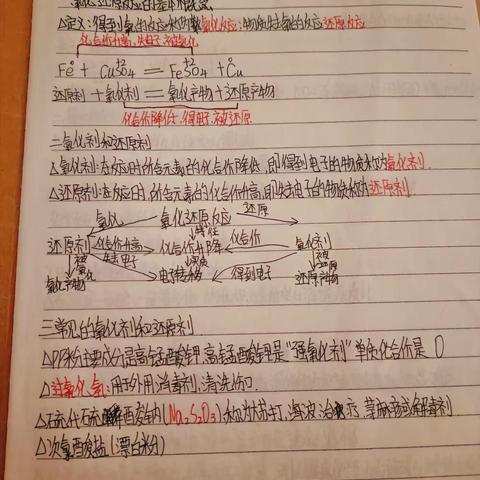 氧化还原反应的基本概念
△定义:得到氧的反应称为氧化反应:物质失去氧的反应还原反应
化合价升高,失电子,被氧化
Fe⁰ + CuSO₄ = FeSO₄ + Cu⁰
还原剂+氧化剂=氧化产物+还原产物
化合价降低,得电子,被还原
二氧化剂和还原剂
△氧化剂:在反应时,所含元素的化合价降低,即得到电子的物质称为氧化剂.
△还原剂:在反应时,所含元素的化合价升高,即失去电子的物质称为还原剂.
氧化 氧化还原反应 还原
特征
还原剂 化合价升高 化合价升降 化合价 氧化剂
被氧化 失去电子 实质 被还原
氧化产物 电子转移 得到电子 还原产物
三常见的氧化剂和还原剂
△PP粉主要成分是高锰酸钾,高锰酸钾是“强氧化剂”单质化合价是0
△过氧化氢:用于外用消毒剂.清洗伤口.
△硫代硫酸钠(Na₂S₂O₃)称为大苏打,海波治疗
△次氯酸盐(漂白粉)